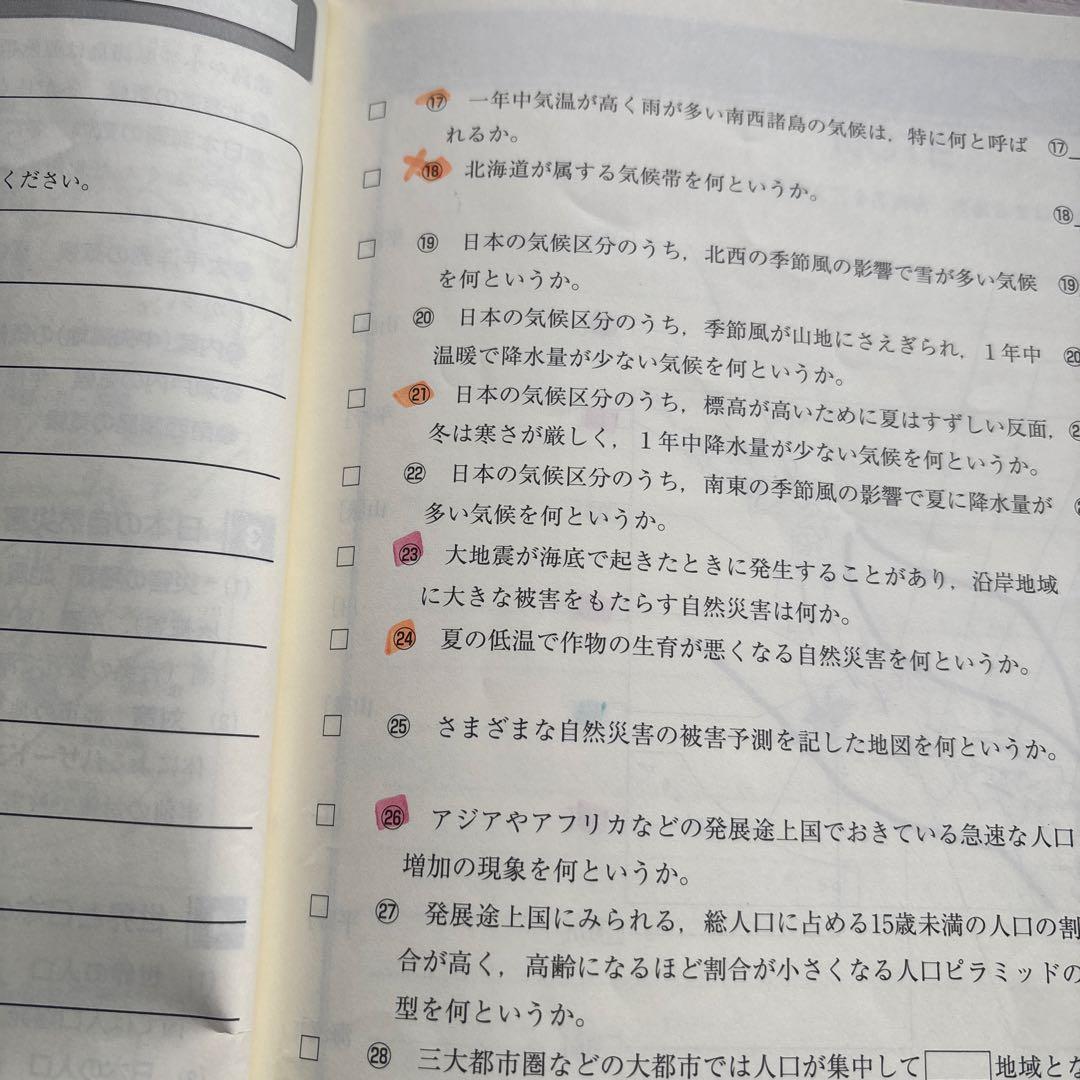 ください。
⑰ 一年中気温が高く雨が多い南西諸島の気候は，特に何と呼ば
れるか。
⑰
⑱ 北海道が属する気候帯を何というか。
⑱
⑲ 日本の気候区分のうち，北西の季節風の影響で雪が多い気候
を何というか。
⑲
⑳ 日本の気候区分のうち，季節風が山地にさえぎられ，1年中
温暖で降水量が少ない気候を何というか。
⑳
㉑ 日本の気候区分のうち，標高が高いために夏はすずしい反面，
冬は寒さが厳しく，1年中降水量が少ない気候を何というか。
㉒ 日本の気候区分のうち，南東の季節風の影響で夏に降水量が
多い気候を何というか。
㉓ 大地震が海底で起きたときに発生することがあり，沿岸地域
に大きな被害をもたらす自然災害は何か。
㉔ 夏の低温で作物の生育が悪くなる自然災害を何というか。
㉕ さまざまな自然災害の被害予測を記した地図を何というか。
㉖ アジアやアフリカなどの発展途上国でおきている急速な人口
増加の現象を何というか。
㉗ 発展途上国にみられる，総人口に占める15歳未満の人口の割
合が高く，高齢になるほど割合が小さくなる人口ピラミッドの
型を何というか。
㉘ 三大都市圏などの大都市では人口が集中して 地域とな